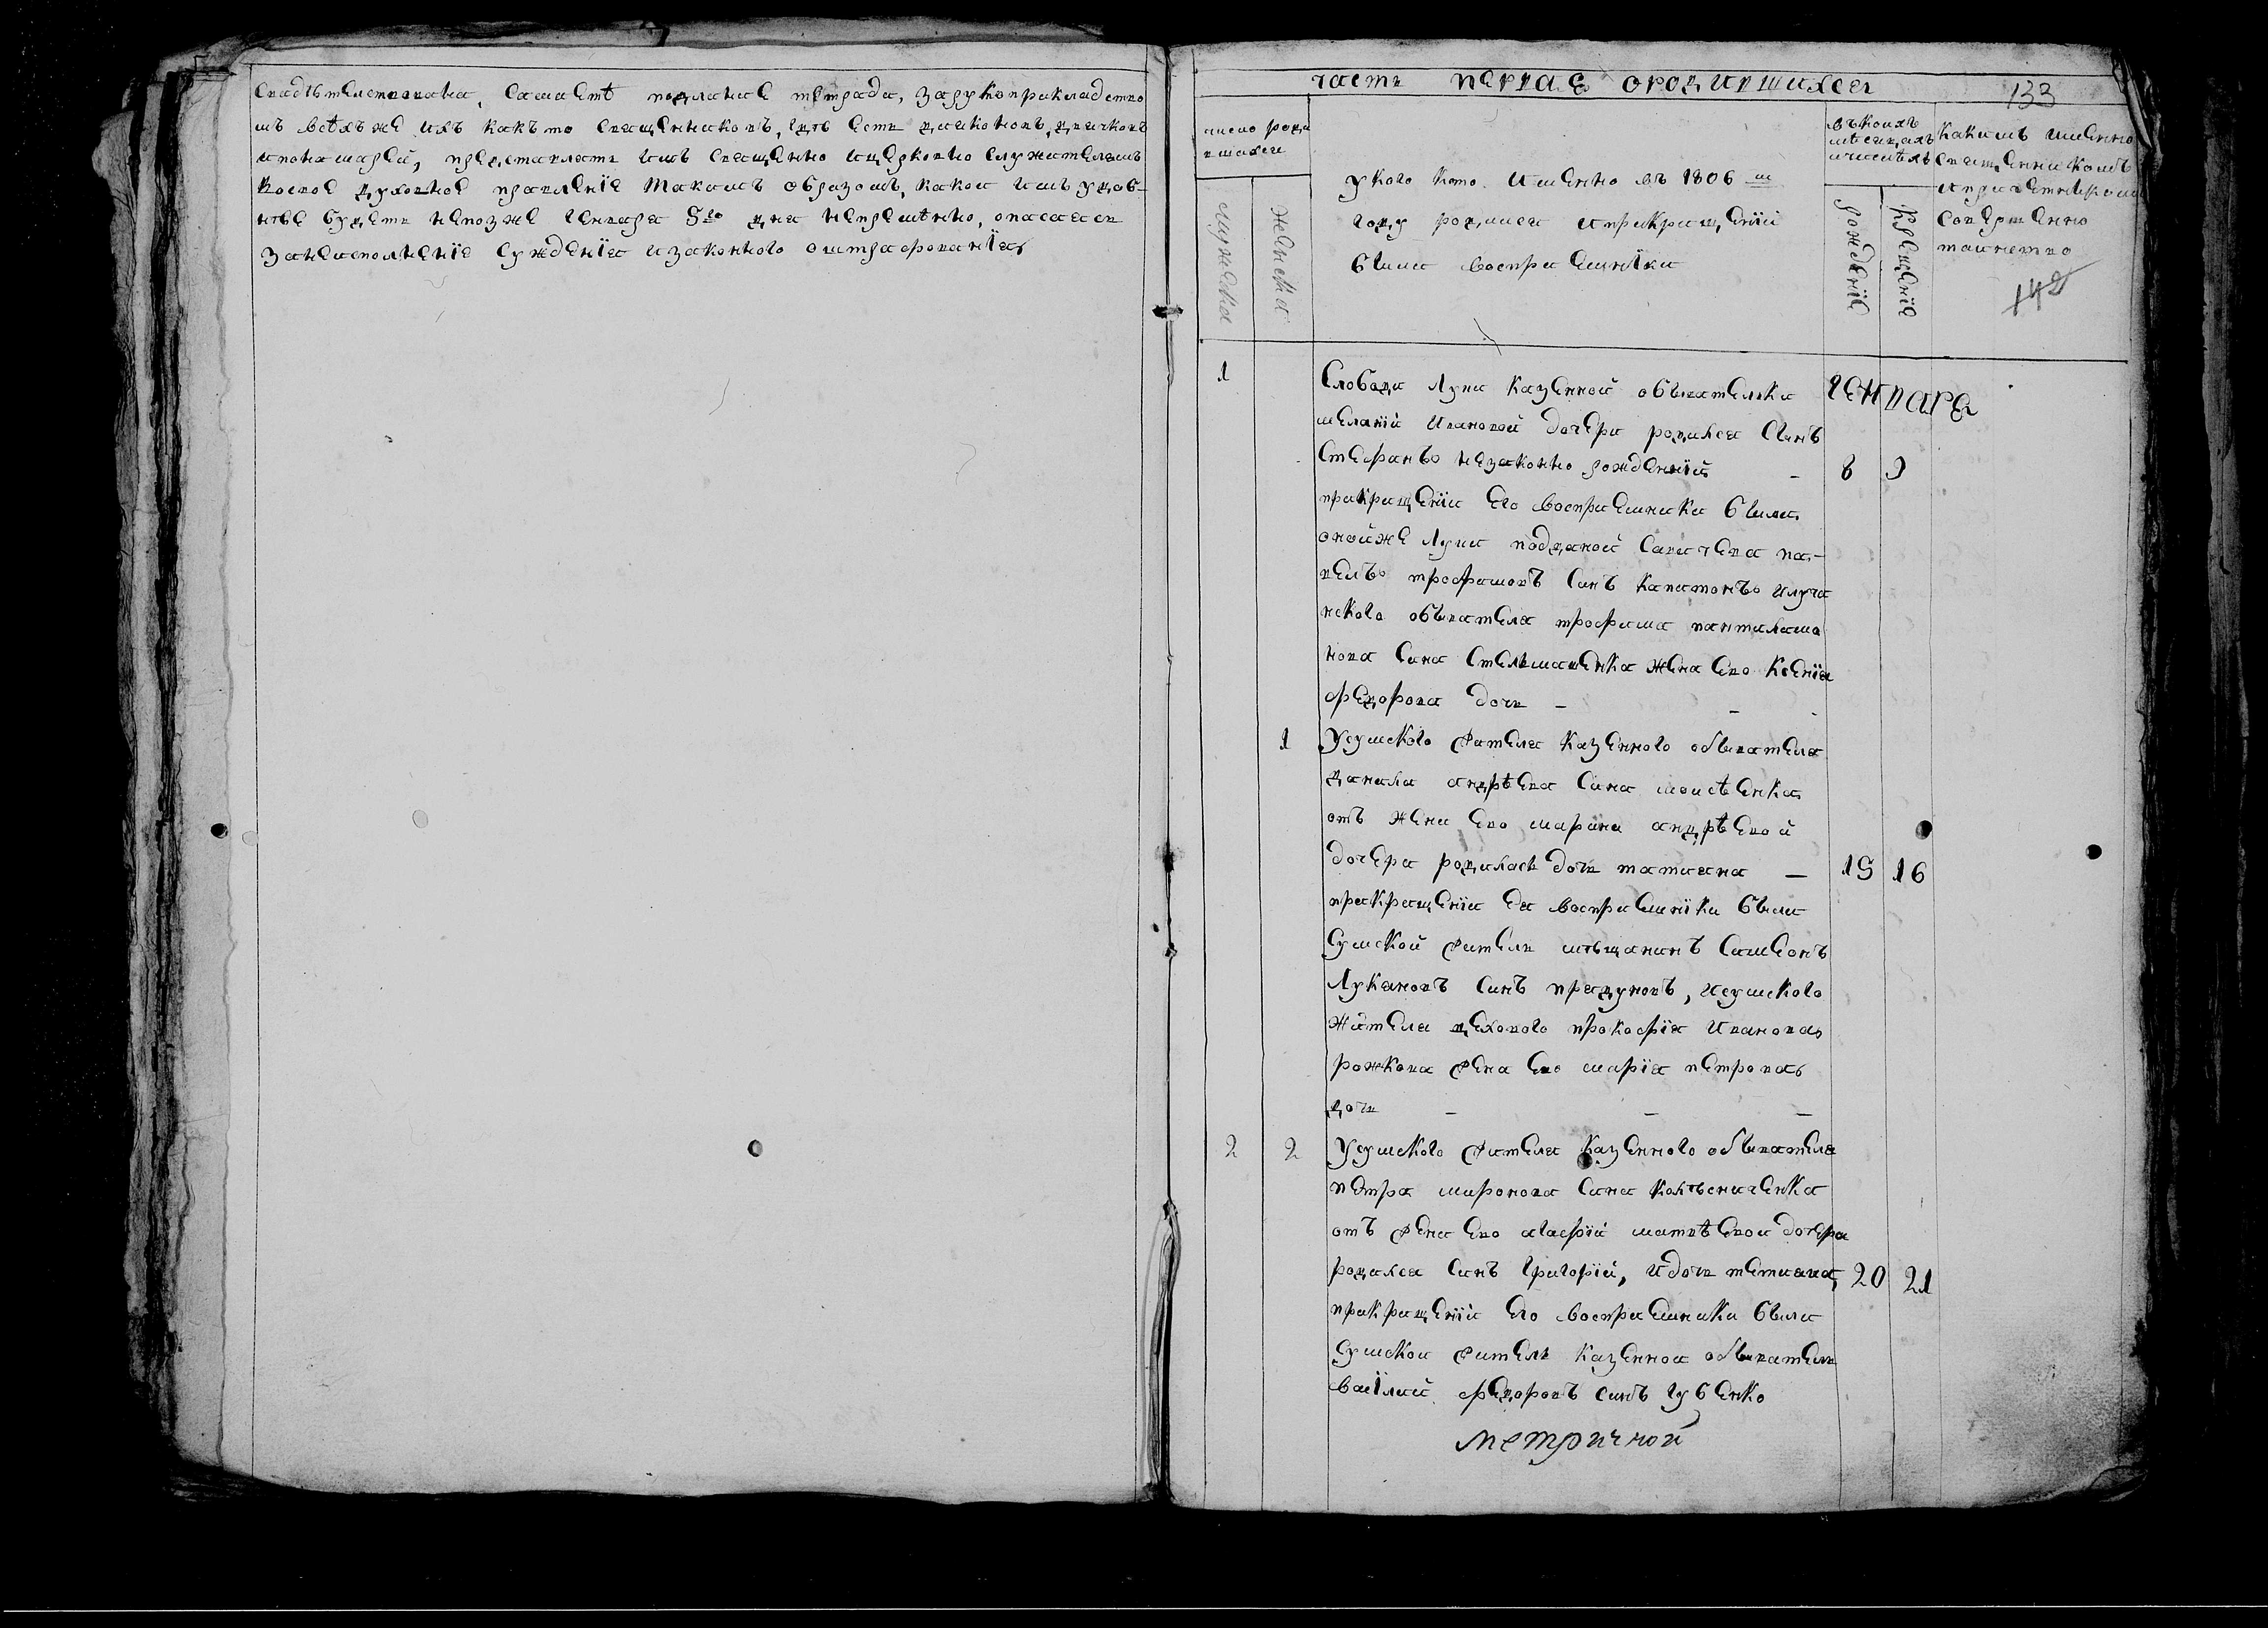 свидѣтелствована, самаетѣ подлинне тетради, зарукоприкладство
мъ всѣхъже ихъ какъто священниковъ, гдѣ есть диаконовъ, дьячковъ
ипонамарей, представлять имъ священно ицерковно служителямъ
восвое духовное правленїе такимъ образомъ, какои имъ удоб-
нѣе будетъ непозже генваря 5го дня непремѣнно, опасаяся
занеисполненїе сужденїя изаконного оштрафованїя
часть первая ородившихся
133
число роди
вшихся
мужеска
женска
укого кто именно въ 1806 м
году родился иприкрищенїи
были восприемнїки
въкоихъ
мѣсяцахъ
ичислѣхъ
рождение
крещенїе
Какимъ именно
священникомъ
ипричетником
совершенно
таинство
142
1
Слободи Луки казенной обывателки
меланїи ивановой дочери родился синъ
Стефанъ незаконно рожденнїй
8 9
прикрищенїи его восприемники были
онойже Луки подданой савичева па-
велъ трофимовъ синъ капитонъ илуча
нского обывателя трофима пантилимо
нова сина стельмашенка жена ево ксенїя
федорова дочь
генваря
1
Усумского жителя казенного обывателя
данила андрѣева сина моисѣенка
отъ жени ево марини андрѣевой
дочери родилась дочь татияна
15 16
прикрищенїи ея восприемнїки были
Сумской житель мѣщанинъ симеонъ
Лукяновъ синъ прядуновъ, исумского
жителя цехового прокофїя иванова
рожкова жена ево марїя петрова
дочь
2 2
Усумского жителя казенного обывателя
петра миронова сина колѣсниченка
отъ жени ево агафїи матвѣевои дочери
родился синъ григорїй, идочь татияна,
20 21
прикрищенїи его восприемники были
сумскои житель казеннои обыватель
васїлий федоровъ синъ губенко
метричной